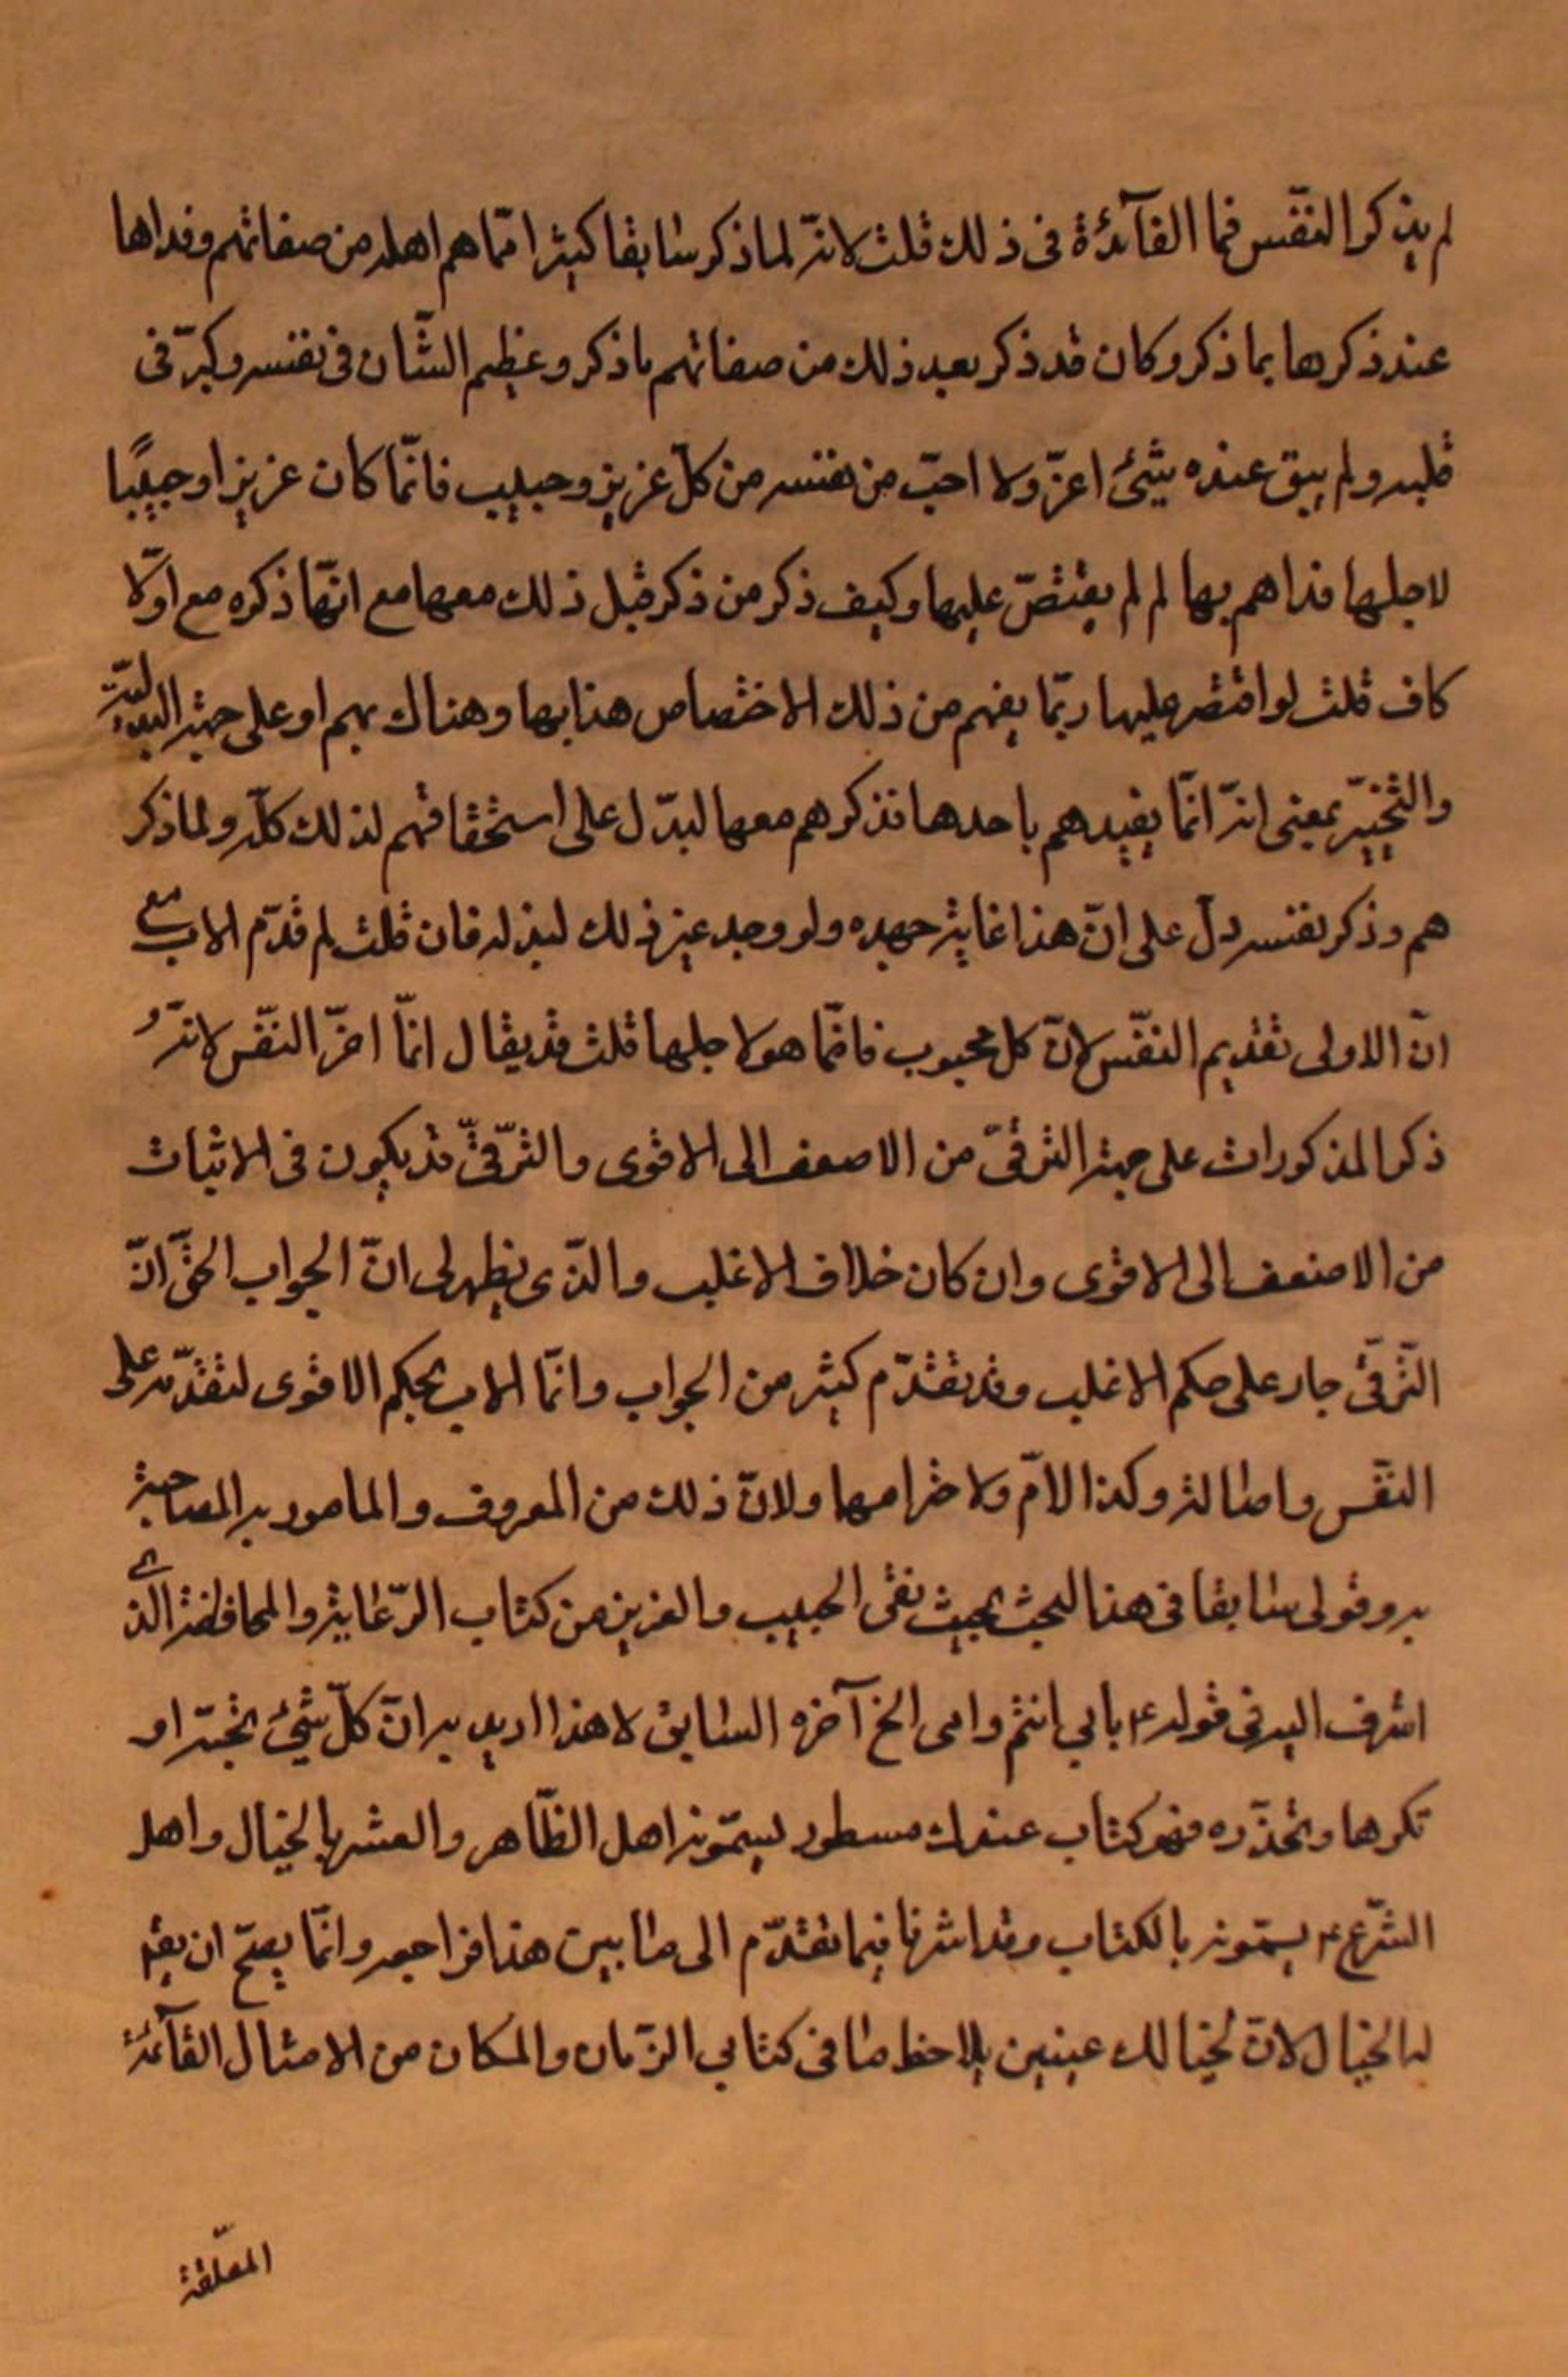 لم يذكر النّفس فما الفآئدة فى ذلك قلت لانّه لما ذكر سابقا كثيرا ممّا هم اهله من صفاتهم وفداها
عند ذكرها بما ذكر وكان قد ذكر بعد ذلك من صفاتهم ما ذكر وعظيم الشّان فى نفسه وكبرّ فى
قلبه ولم يبق عنده شئ اعزّ ولا احبّ من نفسه من كلّ عزيز وحبيب فانّما كان عزيزا وحبيبًا
لاجلها فداهم بها لم لم يقتصّر عليها وكيف ذكر من ذكر قبل ذلك معها مع انّها ذكره مع اوّلا
كاف قلت لو اقتصر عليها ربّما يفهم من ذلك الاختصاص هنا بها وهناك بهم او على جهة البدليّة
والتّخيّير بمعنى انّه انّما يفيدهم باحدها فذكرهم معها ليدّل على استحقاقهم لذلك كلّه ولما ذكر
هم وذكر نفسه دلّ على انّ هذا غاية جهده ولو وجد غير ذلك لبذله فان قلت لم قدّم الاب مع
انّ الاولى تقديم النّفس لانّ كل محبوب فانّما هو لاجلها قلت قد يقال انّما اخرّ النّفس لانّه
ذكر المذكورات على جهة الترقىّ من الاضعف الى الاقوى والترّقىّ قد يكون فى الاثبات
من الاضعف الى الاقوى وان كان خلاف الاغلب والذّى يظهر لى انّ الجواب الحقّ انّ
الترّقى جار على حكم الاغلب وقد تقدّم كثير من الجواب وانّما الاب بحكم الاقوى لتقدّمه على
النّفس واصالته وكذا الامّ ولاحترامها ولانّ ذلك من المعروف والمامور به المصاحبة
به وقولى سابقا فى هذا البحث بحيث نفى الحبيب والعزيز من كتاب الرّعاية والمحافظة الذى
اشرف اليه فى قوله ع بابي انتم وامى الخ آخره السابق لا هذا اريد به انّ كلّ شئ تحبّه او
تكرها وتحذّره فهو كتاب عندك مسطور يسمّونه اهل الظّاهر والعشر بالخيال واهل
الشّرع ع يسمّونه بالكتاب وقد اشرنا فيما تقدّم الى ما بين هذا فراجعه وانّما يصحّ ان يقال
له الخيال لانّ لخيالك عينين يلاحظ ما فى كتابي الزّمان والمكان من الامثال القآئمة
المعلّقة